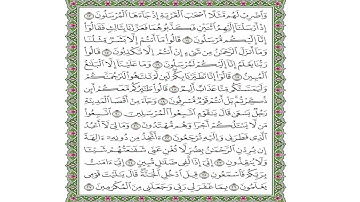 وَٱضْرِبْ لَهُم مَّثَلًا أَصْحَٰبَ ٱلْقَرْيَةِ إِذْ جَآءَهَا ٱلْمُرْسَلُونَ ١٣
إِذْ أَرْسَلْنَآ إِلَيْهِمُ ٱثْنَيْنِ فَكَذَّبُوهُمَا فَعَزَّزْنَا بِثَالِثٍ فَقَالُوٓا۟
إِنَّآ إِلَيْكُم مُّرْسَلُونَ ١٤ قَالُوا۟ مَآ أَنتُمْ إِلَّا بَشَرٌ مِّثْلُنَا
وَمَآ أَنزَلَ ٱلرَّحْمَٰنُ مِن شَىْءٍ إِنْ أَنتُمْ إِلَّا تَكْذِبُونَ ١٥ قَالُوا۟
رَبُّنَا يَعْلَمُ إِنَّآ إِلَيْكُمْ لَمُرْسَلُونَ ١٦ وَمَا عَلَيْنَآ إِلَّا ٱلْبَلَٰغُ
ٱلْمُبِينُ ١٧ قَالُوٓا۟ إِنَّا تَطَيَّرْنَا بِكُمْ لَئِن لَّمْ تَنتَهُوا۟ لَنَرْجُمَنَّكُمْ
وَلَيَمَسَّنَّكُم مِّنَّا عَذَابٌ أَلِيمٌ ١٨ قَالُوا۟ طَٰٓئِرُكُم مَّعَكُمْ أَئِن
ذُكِّرْتُم بَلْ أَنتُمْ قَوْمٌ مُّسْرِفُونَ ١٩ وَجَآءَ مِنْ أَقْصَا ٱلْمَدِينَةِ
رَجُلٌ يَسْعَىٰ قَالَ يَٰقَوْمِ ٱتَّبِعُوا۟ ٱلْمُرْسَلِينَ ٢٠ ٱتَّبِعُوا۟
مَن لَّا يَسْـَٔلُكُمْ أَجْرًا وَهُم مُّهْتَدُونَ ٢١ وَمَا لِىَ لَآ أَعْبُدُ
ٱلَّذِى فَطَرَنِى وَإِلَيْهِ تُرْجَعُونَ ٢٢ ءَأَتَّخِذُ مِن دُونِهِۦٓ ءَالِهَةً
إِن يُرِدْنِ ٱلرَّحْمَٰنُ بِضُرٍّ لَّا تُغْنِ عَنِّى شَفَٰعَتُهُمْ شَيْـًٔا
وَلَا يُنقِذُونِ ٢٣ إِنِّىٓ إِذًا لَّفِى ضَلَٰلٍ مُّبِينٍ ٢٤ إِنِّىٓ ءَامَنتُ
بِرَبِّكُمْ فَٱسْمَعُونِ ٢٥ قِيلَ ٱدْخُلِ ٱلْجَنَّةَ قَالَ يَٰلَيْتَ قَوْمِى
يَعْلَمُونَ ٢٦ بِمَا غَفَرَ لِى رَبِّى وَجَعَلَنِى مِنَ ٱلْمُكْرَمِينَ ٢٧